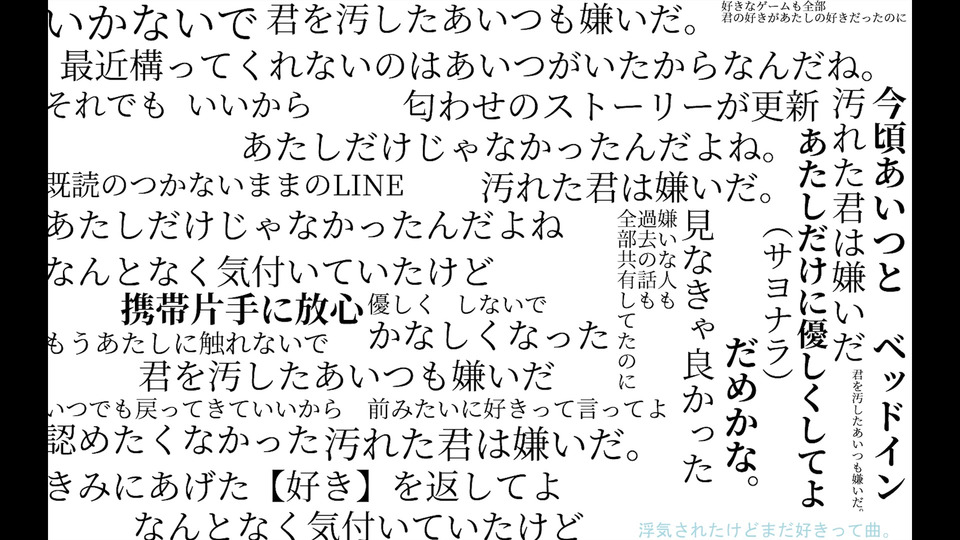 いかないで
君を汚したあいつも嫌いだ。
好きなゲームも全部
君の好きがあたしの好きだったのに
最近構ってくれないのはあいつがいたからなんだね。
それでも いいから
匂わせのストーリーが更新
あたしだけじゃなかったんだよね。
既読のつかないままのLINE
汚れた君は嫌いだ。
あたしだけじゃなかったんだよね
なんとなく気付いていたけど
携帯片手に放心
優しく しないで
かなしくなった
もうあたしに触れないで
君を汚したあいつも嫌いだ
いつでも戻ってきていいから 前みたいに好きって言ってよ
認めたくなかった
汚れた君は嫌いだ。
きみにあげた【好き】を返してよ
なんとなく気付いていたけど
今頃あいつと ベッドイン
汚れた君は嫌いだ
君を汚したあいつも嫌いだ。
あたしだけに優しくしてよ
(サヨナラ)
だめかな。
見なきゃ良かった
嫌いな人も
過去の話も
全部共有してたのに
浮気されたけどまだ好きって曲。